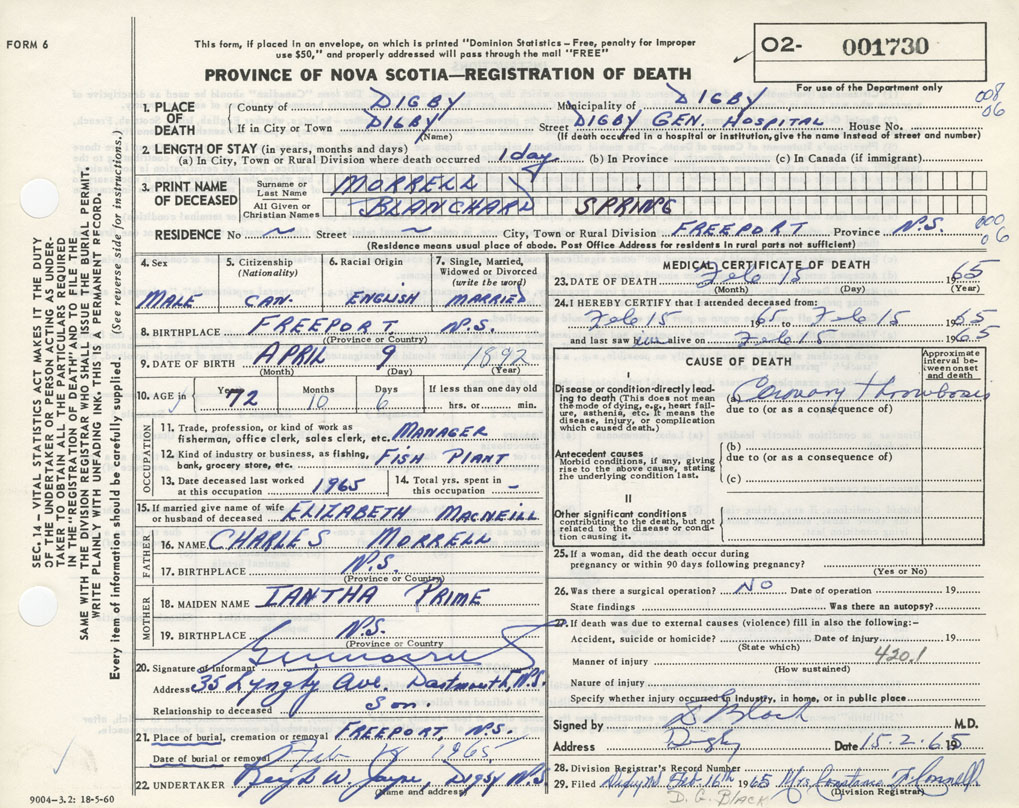 FORM 6
This form, if placed in an envelope, on which is printed "Dominion Statistics – Free, penalty for improper
use $50," and properly addressed will pass through the mail "FREE"
PROVINCE OF NOVA SCOTIA—REGISTRATION OF DEATH
02- 001730
For use of the Department only
008
06
1. PLACE OF DEATH
County of DIGBY Municipality of DIGBY
If in City or Town DIGBY Street DIGBY GEN. HOSPITAL House No.
(Name) (If death occurred in a hospital or institution, give the name instead of street and number)
2. LENGTH OF STAY (in years, months and days)
(a) In City, Town or Rural Division where death occurred 1 day (b) In Province (c) In Canada (if immigrant)
3. PRINT NAME OF DECEASED
Surname or Last Name MORRELL
All Given or Christian Names BLANCHARD SPRING
RESIDENCE No ~ Street ~ City, Town or Rural Division FREEPORT Province N.S.
(Residence means usual place of abode. Post Office Address for residents in rural parts not sufficient)
000
06
4. Sex
MALE
5. Citizenship (Nationality)
CAN.
6. Racial Origin
ENGLISH
7. Single, Married, Widowed or Divorced (write the word)
MARRIED
8. BIRTHPLACE FREEPORT N.S.
(Province or Country)
9. DATE OF BIRTH APRIL 9 1892
(Month) (Day) (Year)
10. AGE in Years 72 Months 10 Days 6 If less than one day old
hrs. or min.
OCCUPATION
11. Trade, profession, or kind of work as
fisherman, office clerk, sales clerk, etc. MANAGER
12. Kind of industry or business, as fishing,
bank, grocery store, etc. FISH PLANT
13. Date deceased last worked
at this occupation 1965
14. Total yrs. spent in
this occupation –
15. If married give name of wife
or husband of deceased ELIZABETH MACNEILL
FATHER
16. NAME CHARLES MORRELL
17. BIRTHPLACE N.S.
(Province or Country)
MOTHER
18. MAIDEN NAME IANTHA PRIME
19. BIRTHPLACE N.S.
(Province or Country)
20. Signature of Informant
Address 35 Lyngby Ave. Dartmouth, N.S.
Relationship to deceased Son.
21. Place of burial, cremation or removal FREEPORT N.S.
Date of burial or removal Feb 18 1965
22. UNDERTAKER W. Jayne, DIGBY N.S.
(Name and address)
9004—3.2: 18-5-60
MEDICAL CERTIFICATE OF DEATH
23. DATE OF DEATH Feb 15 1965
(Month) (Day) (Year)
24. I HEREBY CERTIFY that I attended deceased from:
Feb 15 1965 to Feb 15 1965
and last saw him alive on Feb 15 1965
CAUSE OF DEATH
Approximate interval between onset and death
I
Disease or condition directly leading to death (This does not mean the mode of dying, e.g., heart failure, asthenia, etc. It means the disease, injury, or complication which caused death.)
(a) Coronary thrombosis
due to (or as a consequence of)
Antecedent causes
Morbid conditions, if any, giving rise to the above cause, stating the underlying condition last.
(b)
due to (or as a consequence of)
(c)
II
Other significant conditions
contributing to the death, but not related to the disease or condition causing it.
25. If a woman, did the death occur during
pregnancy or within 90 days following pregnancy?
(Yes or No)
26. Was there a surgical operation? NO Date of operation 19
State findings Was there an autopsy?
27. If death was due to external causes (violence) fill in also the following:—
Accident, suicide or homicide? Date of injury 19
(State which)
Manner of injury 420.1
(How sustained)
Nature of injury
Specify whether injury occurred in industry, in home, or in public place
Signed by D Black M.D.
Address Digby Date 15.2.65 19
28. Division Registrar's Record Number
29. Filed Feb. 16th 1965 Mrs Constance
(Division Registrar)
D. G. BLACK
SEC. 14 – VITAL STATISTICS ACT MAKES IT THE DUTY
OF THE UNDERTAKER OR PERSON ACTING AS UNDER-
TAKER TO OBTAIN ALL THE PARTICULARS REQUIRED
IN THE "REGISTRATION OF DEATH" AND TO FILE THE
SAME WITH THE DIVISION REGISTRAR WHO SHALL ISSUE THE BURIAL PERMIT.
WRITE PLAINLY WITH UNFADING INK. THIS IS A PERMANENT RECORD.
Every item of information should be carefully supplied. (See reverse side for instructions.)